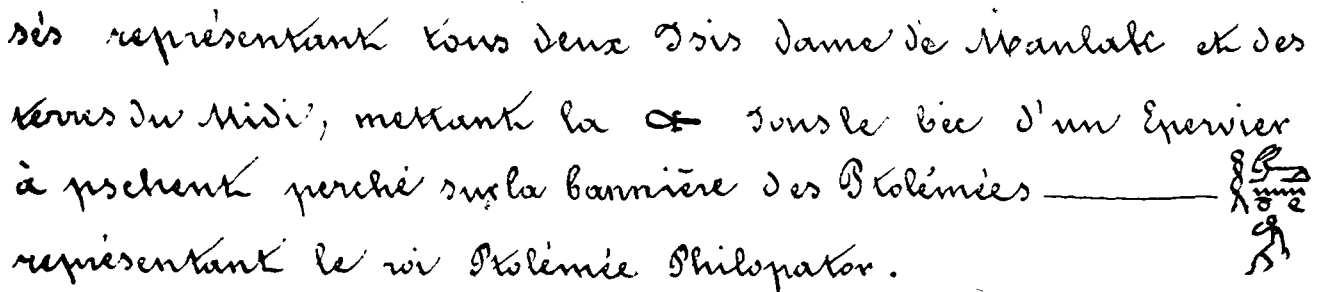 sés représentant tous deux Isis dame de Manlak et des
terres du Midi, mettant la 𓋹 sous le bec d'un Epervier
à pschent perché sur la bannière des Ptolémées
représentant le roi Ptolémée Philopator.